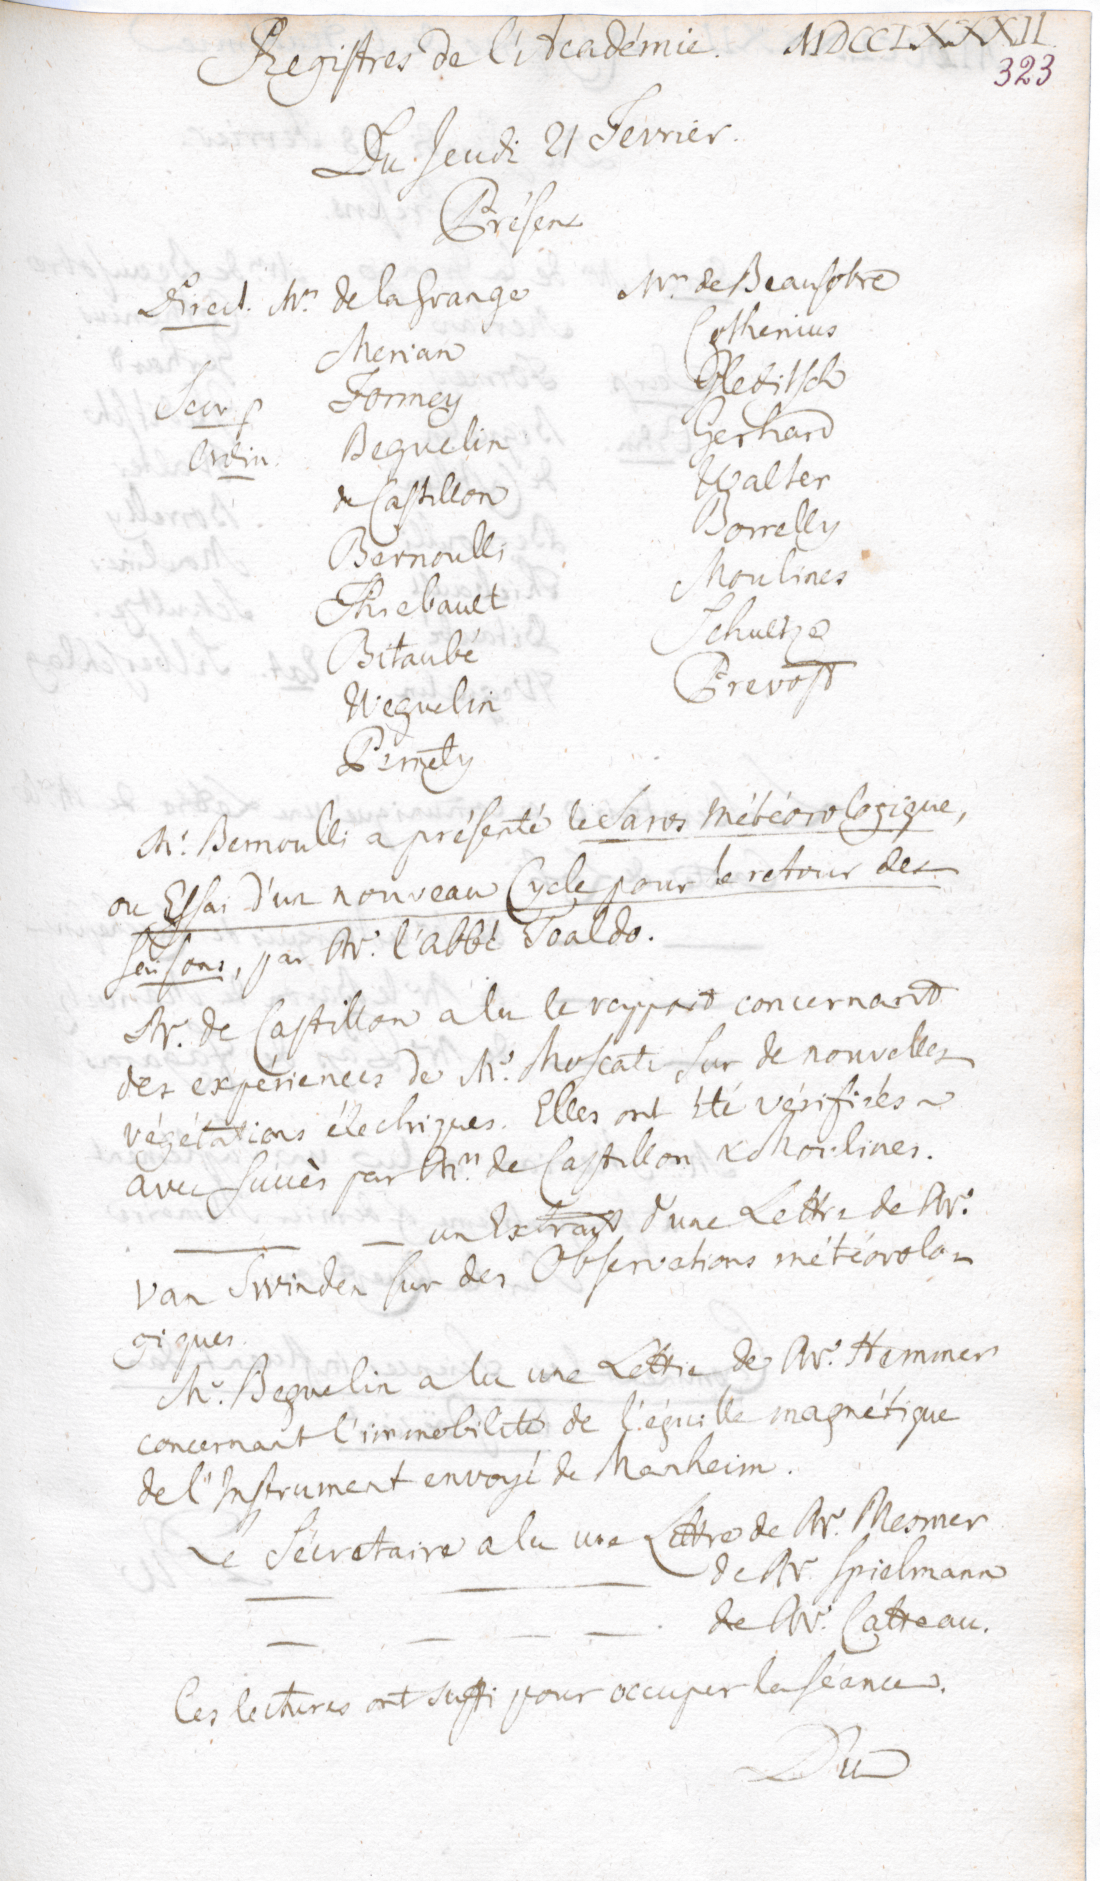 Registres de l'Académie. MDCCLXXXII
323
Du Jeudi 21 Fevrier.
Présens
Direct. Mrs. de la Grange
Merian
Secr. p. Formey
Ordin. Beguelin
de Castillon
Bernoulli
Thiebault
Bitaubé
Weguelin
Pernety
Mrs. de Beausobre
Cothenius
Gleditsch
Gerhard
Walter
Borrelly
Moulines
Schultze
Prevost
Mr. Bernoulli a présenté le Saros météorologique,
ou Essai d'un nouveau Cycle pour le retour des
saisons, par Mr. l'abbé Toaldo.
Mr. de Castillon a lu le rapport concernant
des expériences de Mr. Moscati sur de nouvelles
végétations électriques. Elles ont été vérifiées
avec succès par Mrs. de Castillon & Moulines.
— — un Extrait d'une Lettre de Mr.
van Swinden sur des Observations météorolo-
giques.
Mr. Beguelin a lu une Lettre de Mr. Hemmer
concernant l'immobilité de l'éguille magnétique
de l'Instrument envoyé de Manheim.
Le Sécretaire a lu une Lettre de Mr. Mesmer
— — de Mr. Spielmann
— — — — de Mr. Catteau.
Ces lectures ont suffi pour occuper la séance.
Du